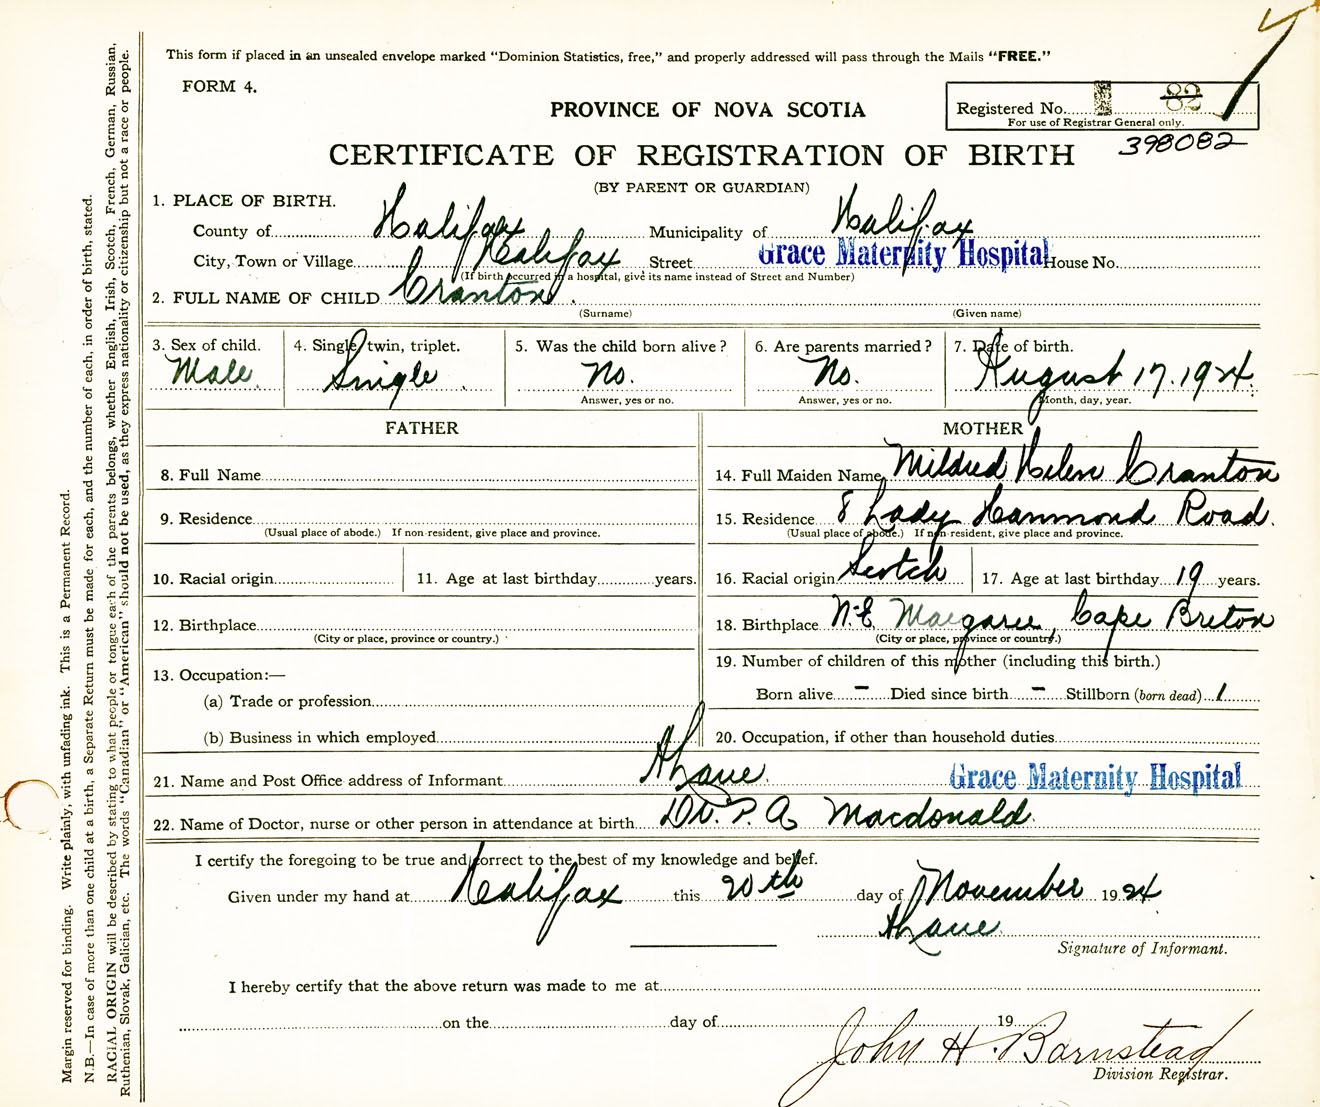 This form if placed in an unsealed envelope marked "Dominion Statistics, free," and properly addressed will pass through the Mails "FREE."
FORM 4.
PROVINCE OF NOVA SCOTIA
Registered No. 82
For use of Registrar General only.
398082
CERTIFICATE OF REGISTRATION OF BIRTH
(BY PARENT OR GUARDIAN)
1. PLACE OF BIRTH.
County of Halifax Municipality of Halifax
City, Town or Village Halifax Street Grace Maternity Hospital House No.
(If birth occurred in a hospital, give its name instead of Street and Number)
2. FULL NAME OF CHILD Cranton.
(Surname) (Given name)
3. Sex of child. 4. Single, twin, triplet. 5. Was the child born alive? 6. Are parents married? 7. Date of birth.
Male. Single. No. No. August 17. 1924.
Answer, yes or no. Answer, yes or no. Month, day, year.
FATHER
8. Full Name
9. Residence
(Usual place of abode.) If non-resident, give place and province.
10. Racial origin 11. Age at last birthday years.
12. Birthplace
(City or place, province or country.)
13. Occupation:—
(a) Trade or profession
(b) Business in which employed
MOTHER
14. Full Maiden Name Mildred Helen Cranton
15. Residence 8 Lady Hammond Road.
(Usual place of abode.) If non-resident, give place and province.
16. Racial origin Scotch 17. Age at last birthday 19 years.
18. Birthplace N.E. Margaree, Cape Breton
(City or place, province or country.)
19. Number of children of this mother (including this birth.)
Born alive - Died since birth - Stillborn (born dead) 1
20. Occupation, if other than household duties
21. Name and Post Office address of Informant Grace Maternity Hospital
22. Name of Doctor, nurse or other person in attendance at birth Dr. P. A. Macdonald.
I certify the foregoing to be true and correct to the best of my knowledge and belief.
Given under my hand at Halifax this 20th day of November 1924
Signature of Informant.
I hereby certify that the above return was made to me at
on the day of 19
John H. Barnstead
Division Registrar.
Margin reserved for binding. Write plainly, with unfading ink. This is a Permanent Record.
N.B.—In case of more than one child at a birth, a Separate Return must be made for each, and the number of each, in order of birth, stated.
RACIAL ORIGIN will be described by stating to what people or tongue each of the parents belongs, whether English, Irish, Scotch, French, German, Russian,
Ruthenian, Slovak, Galician, etc. The words "Canadian" or "American" should not be used, as they express nationality or citizenship but not a race or people.